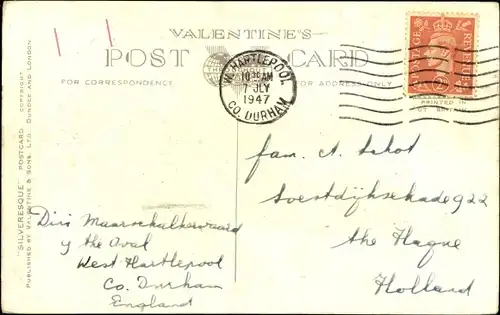 VALENTINE'S
POST CARD
FOR CORRESPONDENCE
FOR ADDRESS ONLY
W. HARTLEPOOL
10 30 AM
7 JLY
1947
CO. DURHAM
POSTAGE REVENUE
PRINTED IN
GT. BRITAIN
"SILVERESQUE" POSTCARD COPYRIGHT
PUBLISHED BY VALENTINE & SONS, LTD., DUNDEE AND LONDON
fam. A. Schot
Soestdijksekade 922
the Hague
Holland
Dini Maarschalkerwaard
9 the Oval
West Hartlepool
Co. Durham
England